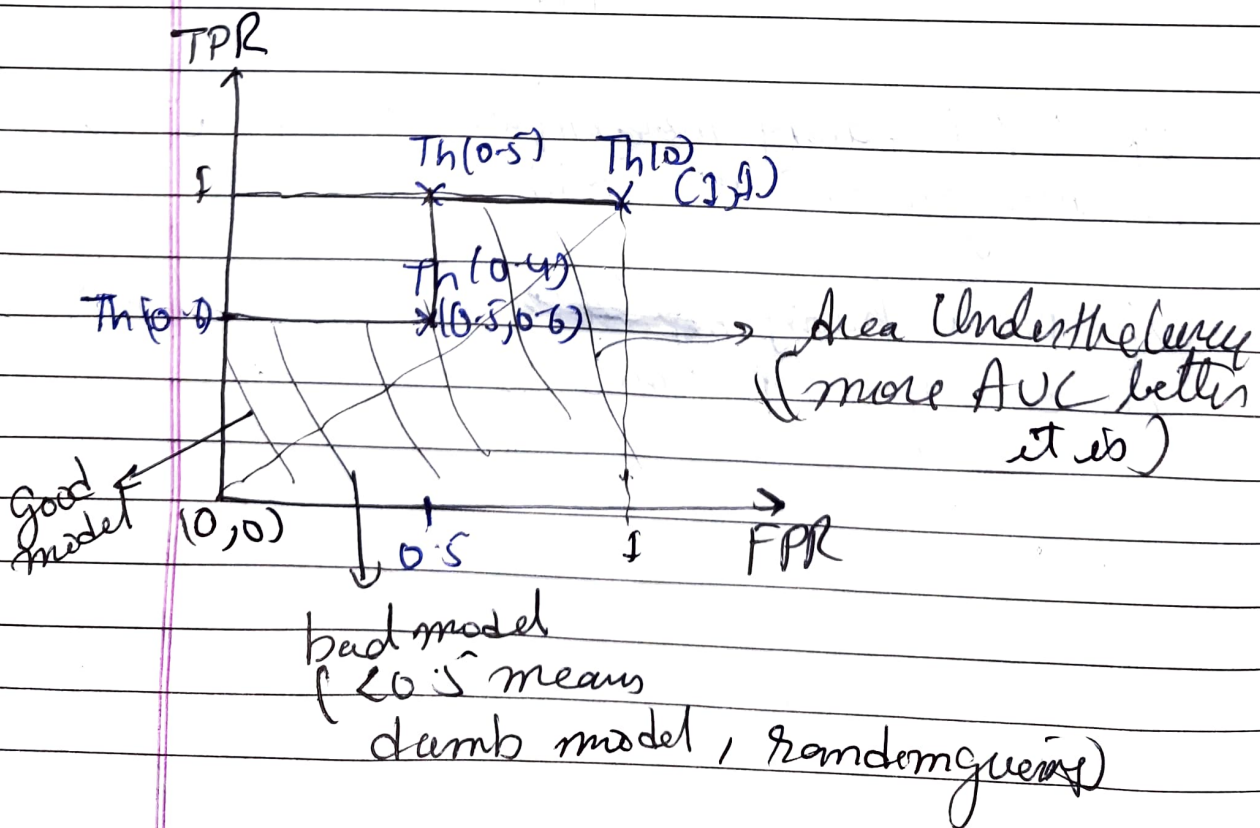 TPR
Th(0.5) Th(0)
1 (1,1)
Th(0.4)
(0.5,0.6)
Area Under the Curve
(more AUC better
it is)
good
model
(0,0)
0.5 1 FPR
bad model
(<0.5 means
dumb model,